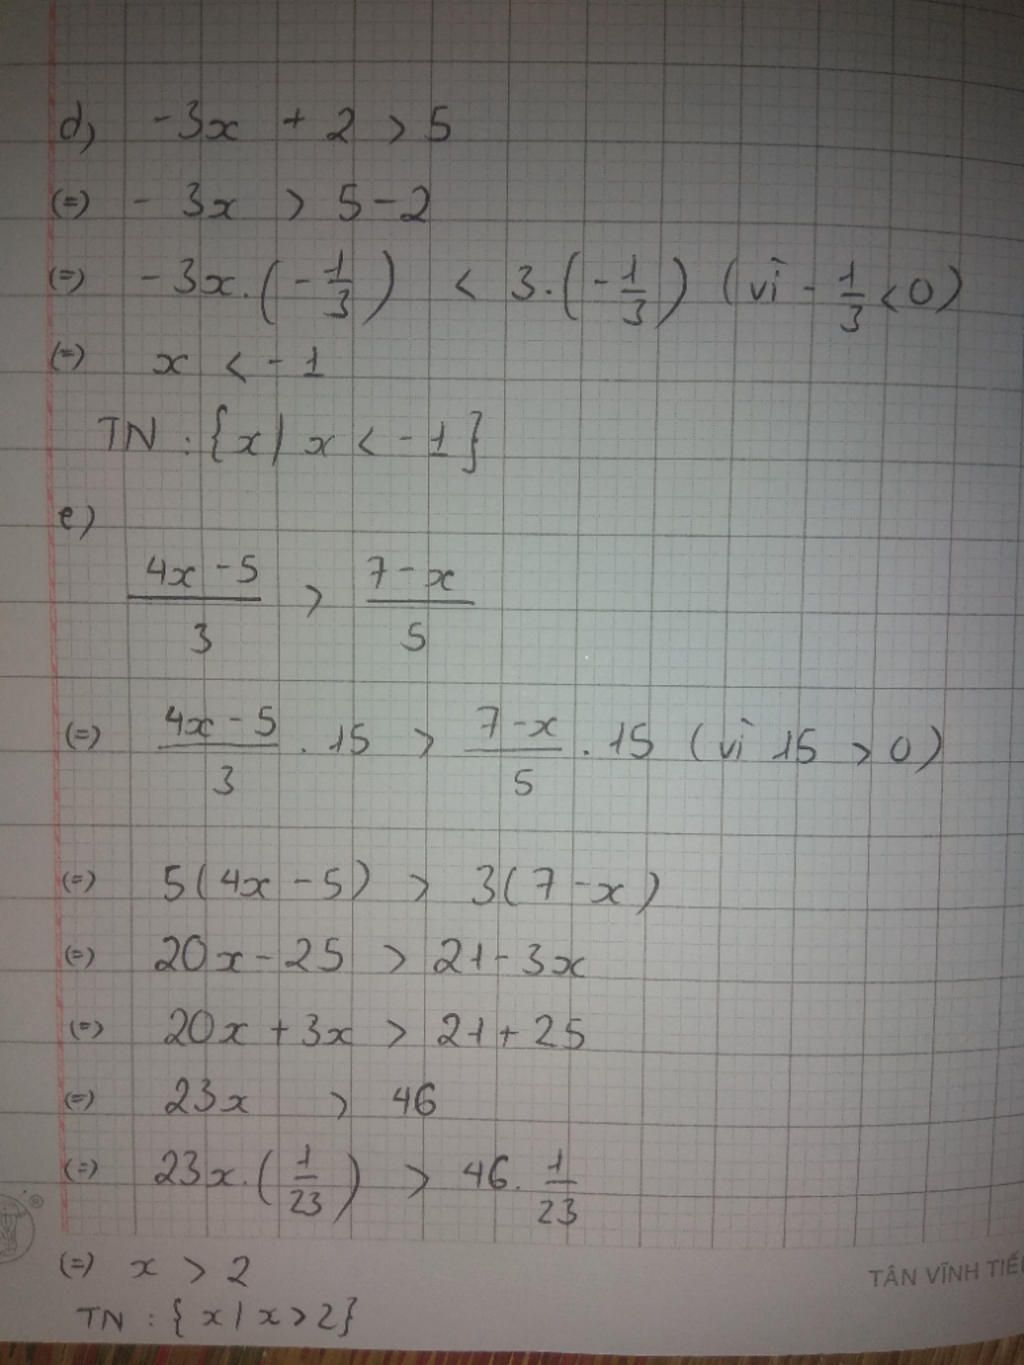 d) -3x + 2 > 5
(=) - 3x > 5-2
(=) -3x.(-1/3) < 3.(-1/3) (vì - 1/3 < 0)
(=) x < -1
TN : {x | x < -1}
e)
4x - 5 / 3 > 7 - x / 5
(=) 4x - 5 / 3 . 15 > 7 - x / 5 . 15 (vì 15 > 0)
(=) 5(4x - 5) > 3(7 - x)
(=) 20x - 25 > 21 - 3x
(=) 20x + 3x > 21 + 25
(=) 23x > 46
(=) 23x.(1/23) > 46. 1/23
(=) x > 2
TN : {x | x > 2}
®
TÂN VĨNH TIẾ